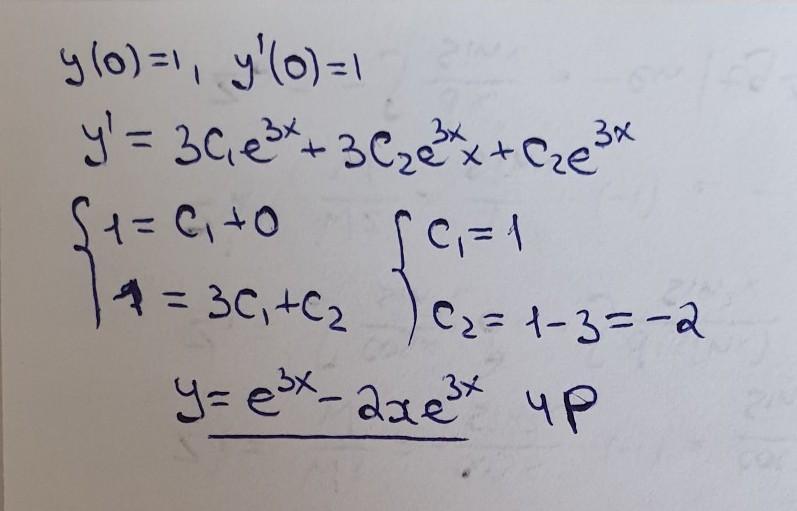 y(0)=1, y'(0)=1
y' = 3C₁e³ˣ + 3C₂e³ˣx + C₂e³ˣ
{ 1 = C₁ + 0 { C₁ = 1
1 = 3C₁ + C₂ C₂ = 1 - 3 = -2
y = e³ˣ - 2xe³ˣ чР